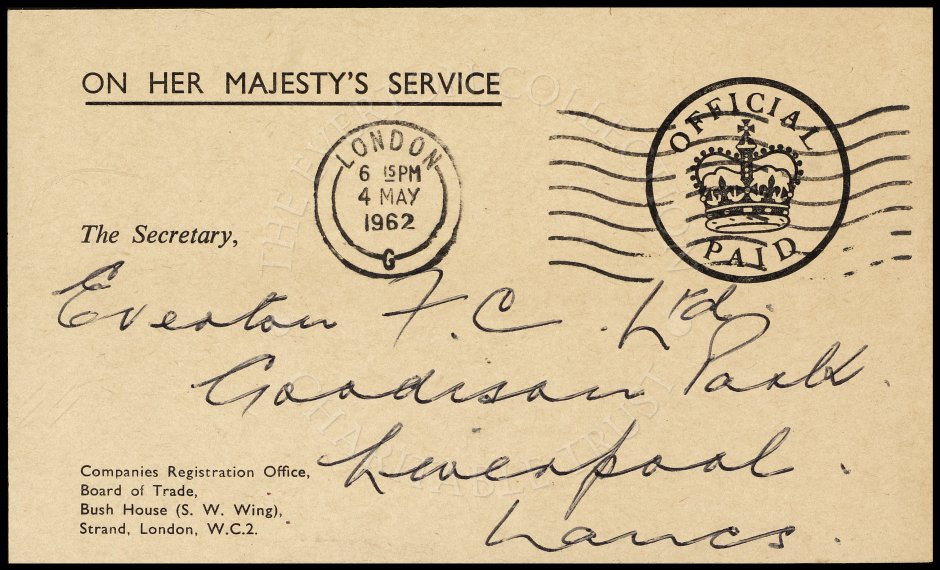 ON HER MAJESTY'S SERVICE
LONDON
6 15PM
4 MAY
1962
G
OFFICIAL
PAID
The Secretary,
Everton F.C. Ltd.
Goodison Park.
Liverpool.
Lancs.
Companies Registration Office,
Board of Trade,
Bush House (S. W. Wing),
Strand, London, W.C.2.
THE EVERTON COLLECTION
CHARITABLE TRUST